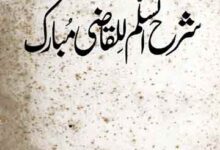 شرح السلم للقاضی مبارک